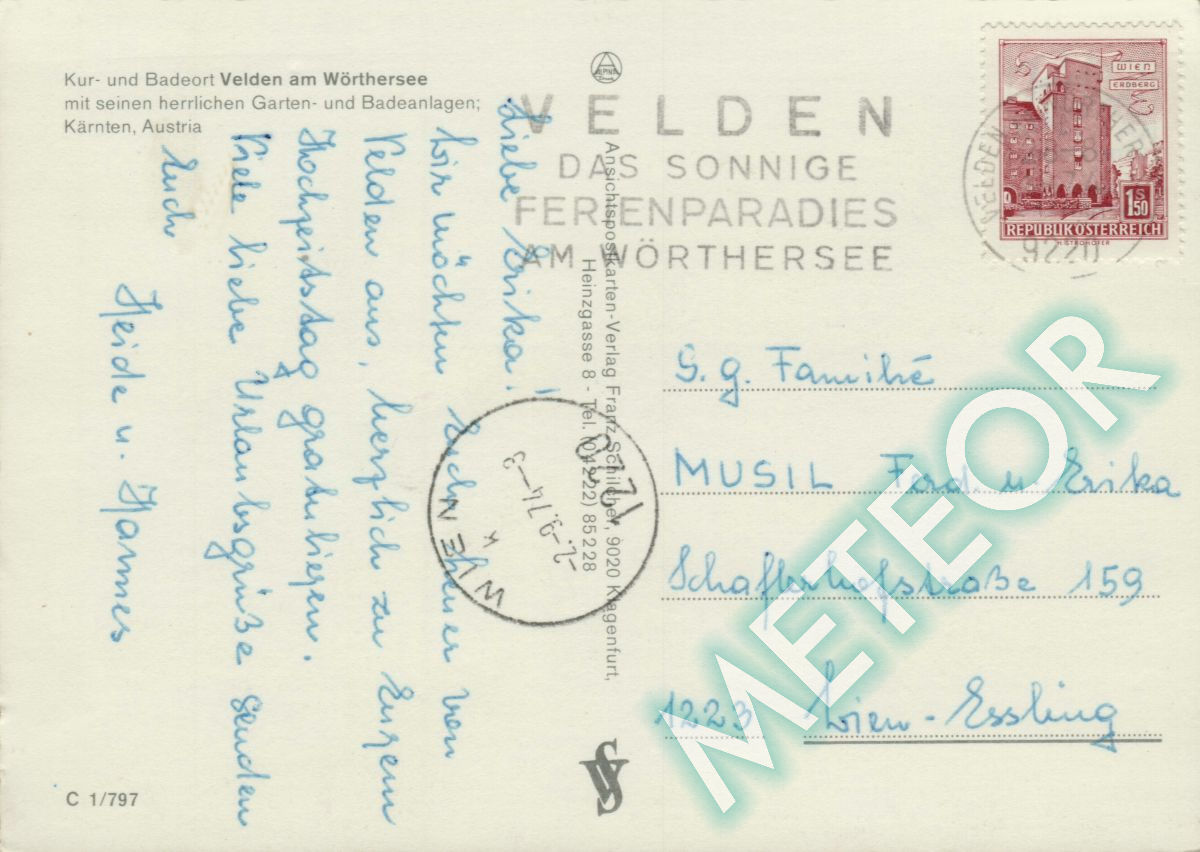 Kur- und Badeort Velden am Wörthersee
mit seinen herrlichen Garten- und Badeanlagen;
Kärnten, Austria
Liebe Erika!
Wir möchten Euch heuer von
Velden aus, herzlich zu Eurem
Hochzeitstag gratulieren.
Viele liebe Urlaubsgrüße senden
Euch
Heide u. Hannes
C 1/797
ALPINA
Ansichtspostkarten-Verlag Franz Schilcher, 9020 Klagenfurt,
Heinzgasse 8 - Tel. (04222) 85228
VELDEN
DAS SONNIGE
FERIENPARADIES
AM WÖRTHERSEE
WIEN
ERDBERG
S
1.50
REPUBLIK ÖSTERREICH
H.STROHOFER
VELDEN
9220
1220
-2.-9.74-3
K
WIEN
S.g. Familie
MUSIL Ferd. u. Erika
Schafflerhofstraße 159
1223 Wien-Essling
METEOR